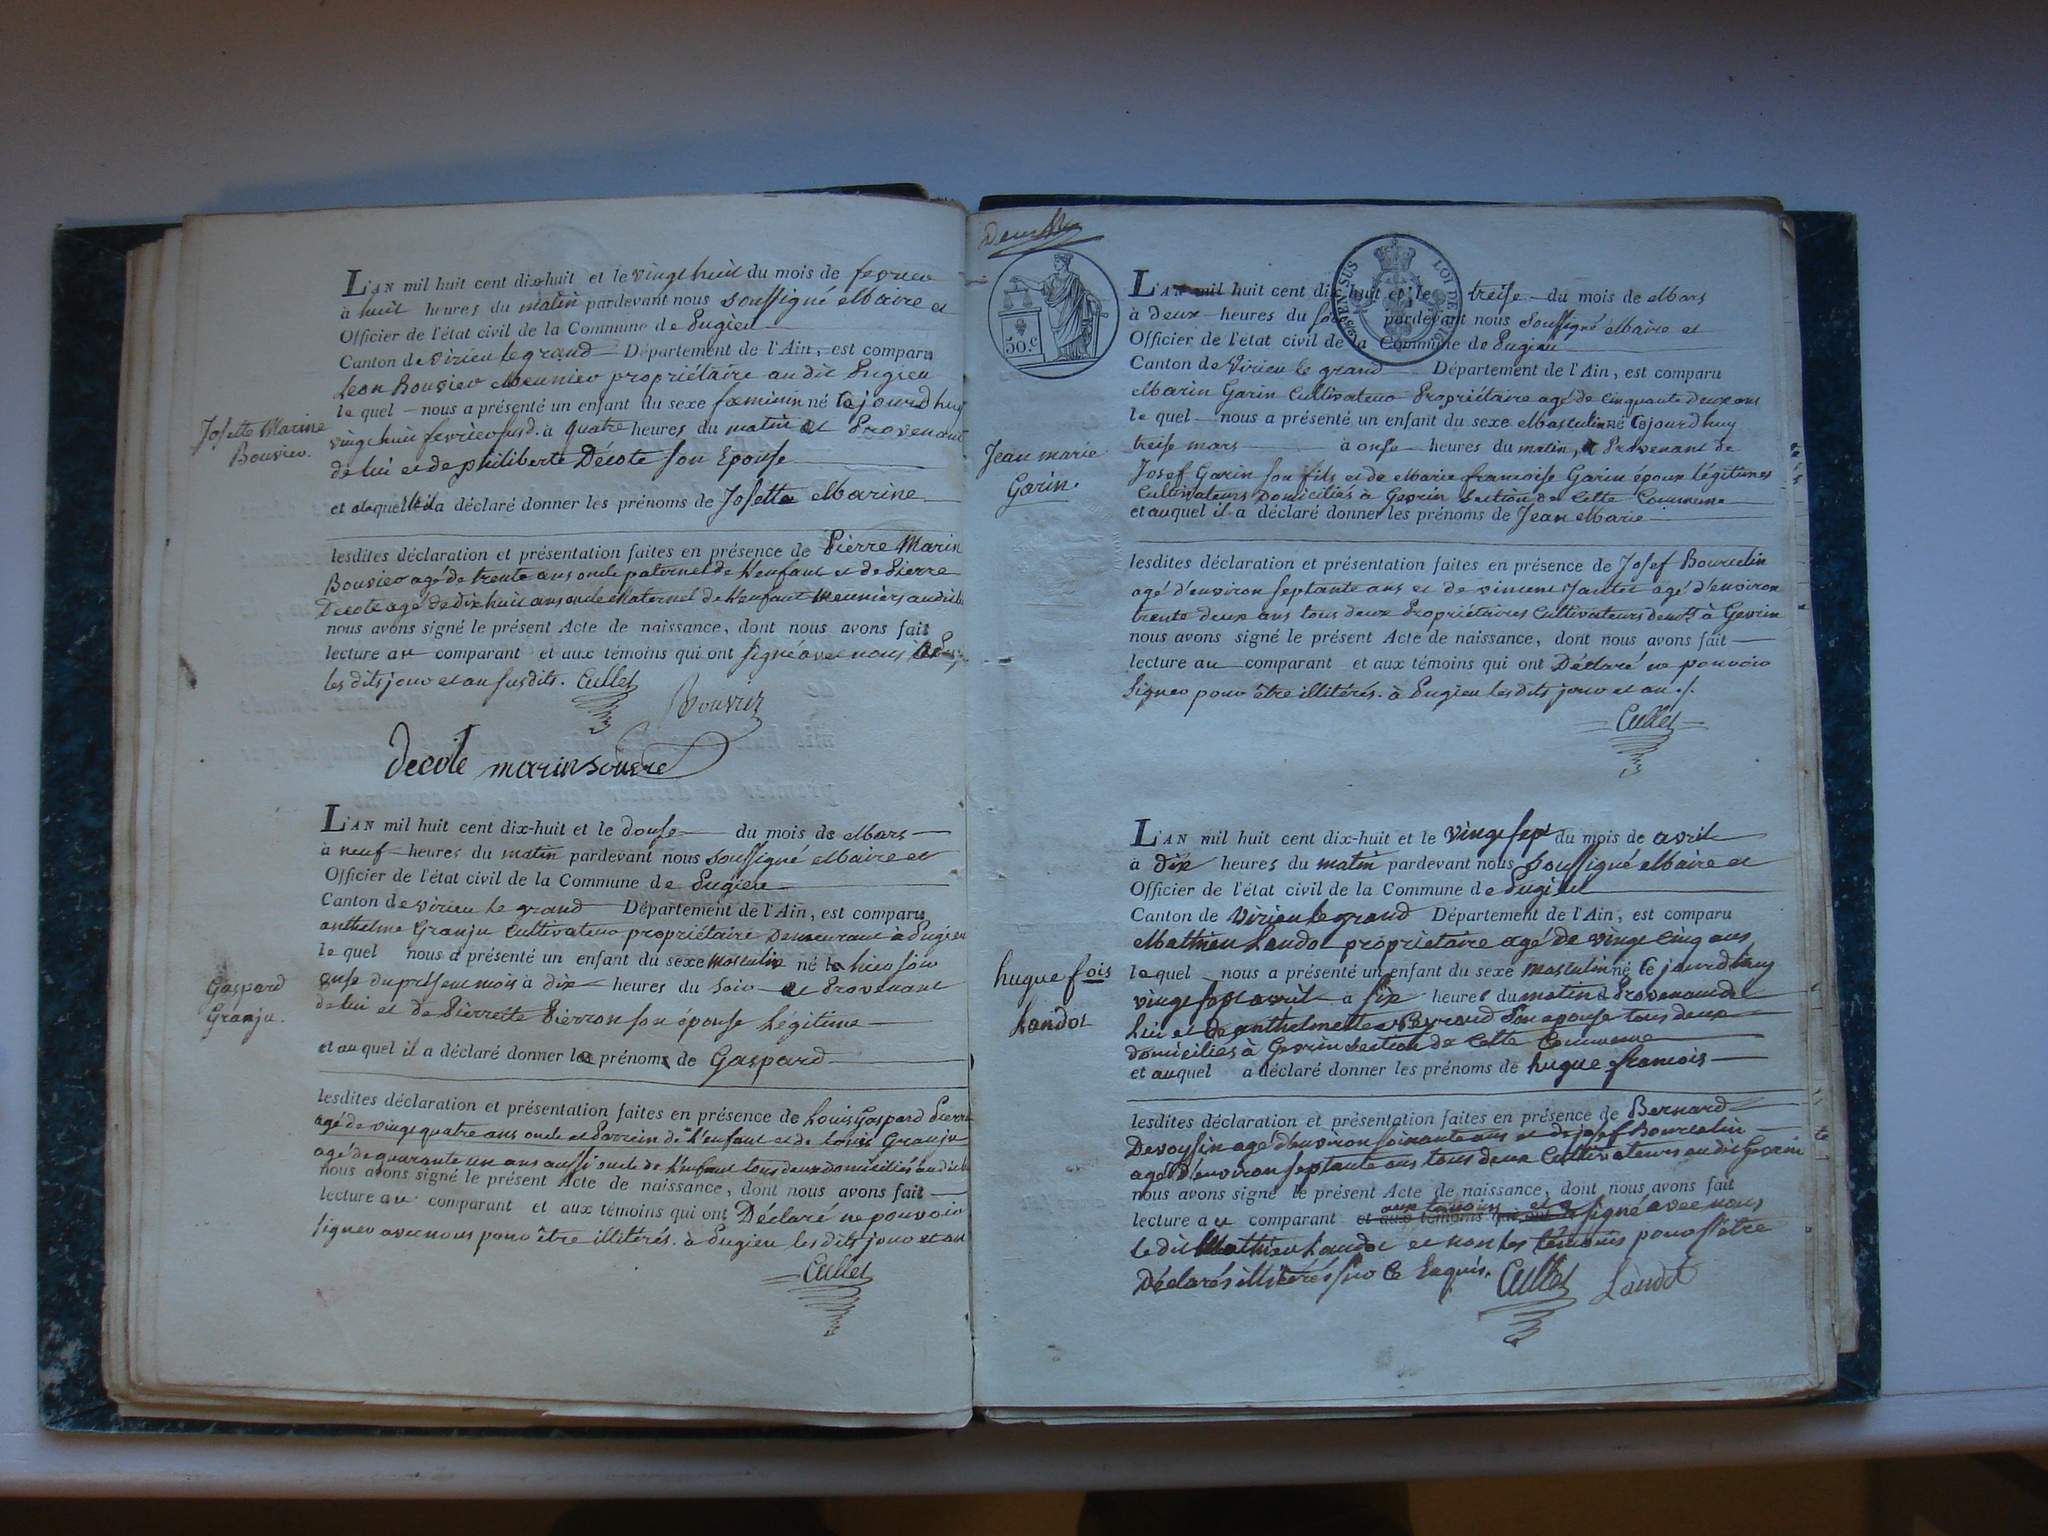 L'AN mil huit cent dix-huit et le vingt huit du mois de fevrier
à huit heures du matin pardevant nous soussigné Maire et
Officier de l'état civil de la Commune de Pugieu
Canton de virieu le grand Département de l'Ain, est comparu
Bouvier Meunier propriétaire audit Pugieu
le quel nous a présenté un enfant du sexe feminin né cejourd'huy
vingt huit fevrier susd. à quatre heures du matin et Provenant
de lui et de philiberte Décote son Epouse
et a laquelle il a déclaré donner les prénoms de Josette Marine
Josette Marine
Bouvier.
lesdites déclaration et présentation faites en présence de Pierre Marin
Bouvier agé de trente ans oncle paternel de l'enfant et de Pierre
Decote agé de dix huit ans oncle Maternel de l'enfant Meuniers audit
nous avons signé le présent Acte de naissance, dont nous avons fait
lecture au comparant et aux témoins qui ont signé avec nous
les dits jour et an susdits. Cullet
Bouvier
decote marin bouvie
L'AN mil huit cent dix-huit et le douse du mois de Mars
à neuf heures du matin pardevant nous soussigné Maire et
Officier de l'état civil de la Commune de Pugieu
Canton de virieu le grand Département de l'Ain, est comparu
anthelme Granju Cultivateur propriétaire Demeurant à Pugieu
le quel nous a présenté un enfant du sexe masculin né le hier soir
onse du présent mois à dix heures du soir et Provenant
de lui et de Pierrette Pierron son épouse Légitime
et au quel il a déclaré donner le prénom de Gaspard
Gaspard
Granju.
lesdites déclaration et présentation faites en présence de Louis Gaspard
agé de vingt quatre ans oncle et Parrein de l'enfant et de Louis Granju
agé de quarante un ans aussi oncle de l'enfant tous deux domiciliés audit
nous avons signé le présent Acte de naissance, dont nous avons fait
lecture au comparant et aux témoins qui ont Déclaré ne pouvoir
signer avec nous pour être illitérés. à Pugieu les dits jour et an
Cullet
50.c
LOI DE
L'AN mil huit cent dix-huit et le treise du mois de Mars
à deux heures du soir pardevant nous soussigné Maire et
Officier de l'état civil de la Commune de Pugieu
Canton de Virieu le grand Département de l'Ain, est comparu
Marin Garin Cultivateur Propriétaire agé de cinquante deux ans
le quel nous a présenté un enfant du sexe Masculin né cejourd'huy
treise mars à onse heures du matin, et Provenant de
Josef Garin son fils et de Marie francoise Garin époux légitimes
Cultivateurs Domiciliés à Gevrin Section de Cette Commune
et auquel il a déclaré donner les prénoms de Jean Marie
Jean marie
Garin.
lesdites déclaration et présentation faites en présence de Josef Bourcelin
agé d'environ septante ans et de vincent Jantet agé d'environ
trente deux ans tous deux Propriétaires Cultivateurs à Gevrin
nous avons signé le présent Acte de naissance, dont nous avons fait
lecture au comparant et aux témoins qui ont Déclaré ne pouvoir
signer pour être illitérés. à Pugieu les dits jour et an
Cullet
L'AN mil huit cent dix-huit et le vingt sept du mois de avril
à dix heures du matin pardevant nous soussigné Maire et
Officier de l'état civil de la Commune de Pugieu
Canton de Virieu le grand Département de l'Ain, est comparu
Mathieu Landot propriétaire agé de vingt cinq ans
le quel nous a présenté un enfant du sexe masculin né ce jourd'huy
vingt sept avril à six heures du matin & Provenant de
Lui et de anthelmette Son epouse tous deux
domiciliés à Gevrin Section de Cette Commune
et auquel a déclaré donner les prénoms de hugue francois
hugue fois
Landot
lesdites déclaration et présentation faites en présence de Bernard
Devoyssin agé d'environ soixante ans et de josef Bourcelin
agé d'environ septante ans tous deux Cultivateurs audit Gevrin
nous avons signé le présent Acte de naissance, dont nous avons fait
aux témoins et a
lecture au comparant et aux témoins qui ont signé avec nous
le dit Mathieu Landot et non les témoins pour s'être
Déclarés illitérés sur ce Enquis. Cullet Landot